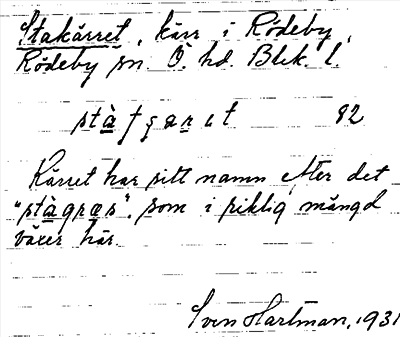 Stakärret, kärr i Rödeby,
Rödeby sn. Ö. hd. Blek. l.
82
Kärret har sitt namn efter det
"stàgræs", som i riklig mängd
växer här.
Sven Hartman, 1931